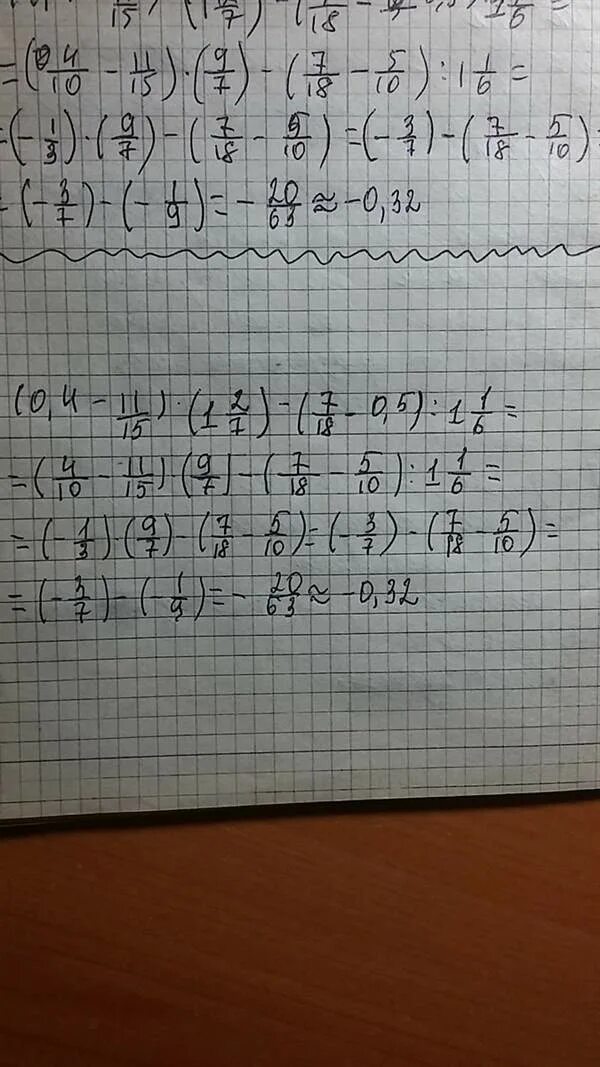 =(4/10 - 11/15)·(9/7) - (7/18 - 5/10) : 1 1/6 =
=(-1/3)·(9/7) - (7/18 - 5/10) = (-3/7) - (7/18 - 5/10) =
(-3/7) - (-1/9) = -20/63 ≈ -0,32
(0,4 - 11/15)·(1 2/7) - (7/18 - 0,5) : 1 1/6 =
=(4/10 - 11/15)(9/7) - (7/18 - 5/10) : 1 1/6 =
=(-1/3)·(9/7) - (7/18 - 5/10) = (-3/7) - (7/18 - 5/10) =
=(-3/7) - (-1/9) = -20/63 ≈ -0,32